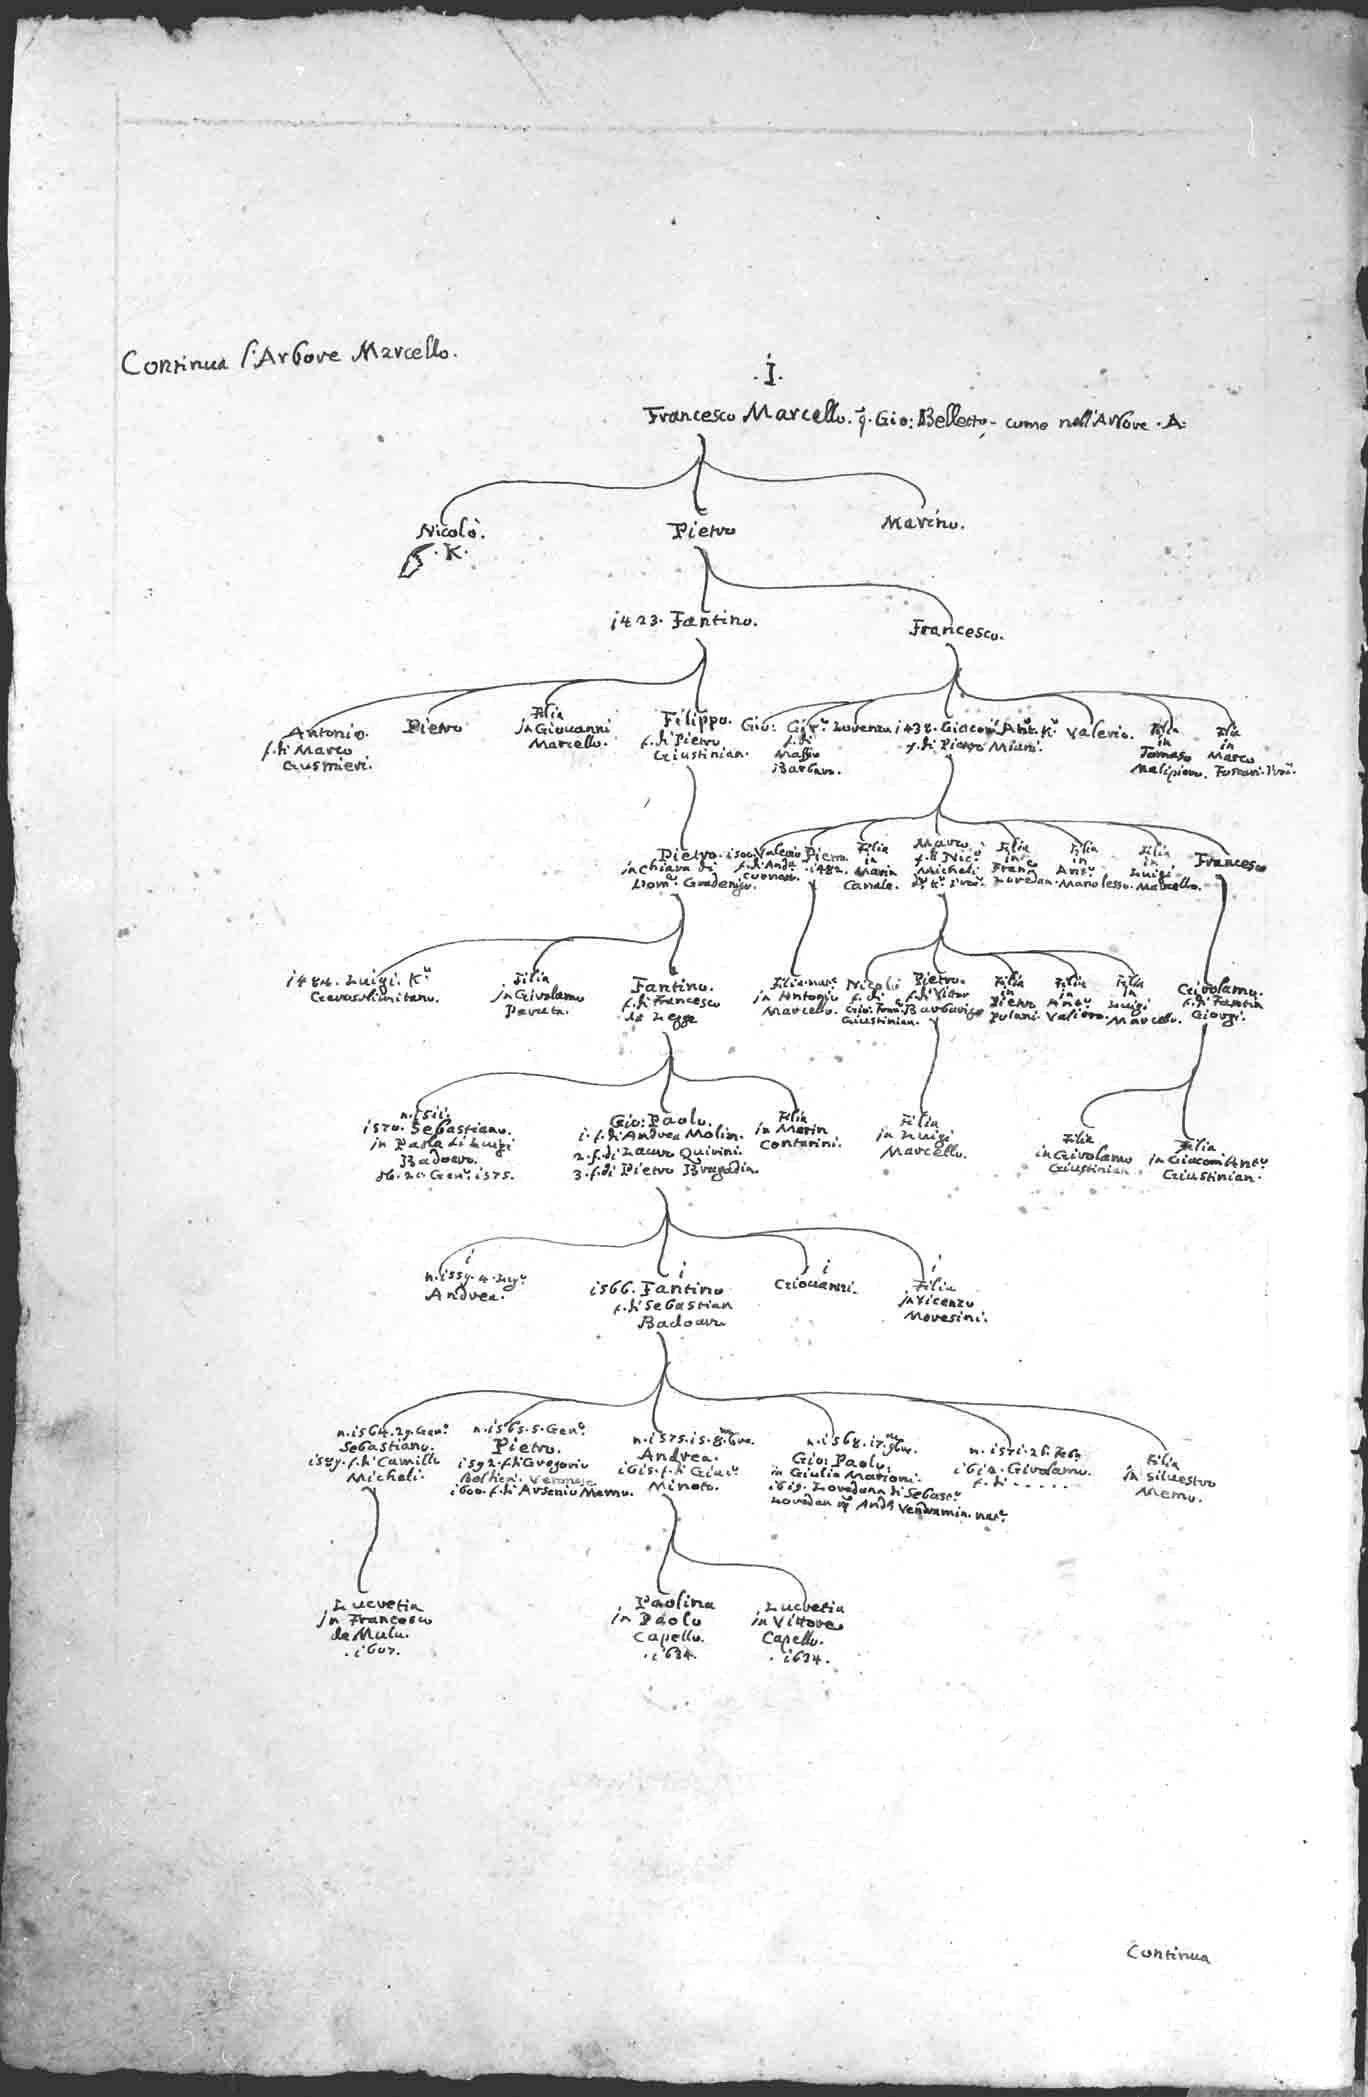 Continua l'Arbore Marcello.
.I.
Francesco Marcello. q. Gio: Belletto, come nell'Arbore .A.
Nicolò.
.K.
Pietro
Marino.
1423. Fantino.
Francesco.
Antonio.
f. di Marco
Gusmieri.
Pietro
Filia
in Giouanni
Marcello.
Filippo.
f. di Pietro
Giustinian.
Gio:
f. di
Maffio
Barbaro.
Lorenzo
1438. Giacom' Antº. Kr.
f. di Pietro Miani.
Valerio.
Filia
in
Tomaso
Malipiero.
Filia
in
Marco
Foscari.
Pietro.
in Chiara di
Domº. Gradenigo.
1500. Valerio
f. di Andª.
Pietro
.1482.
Filia
in
Marin
Canale.
Marco.
f. di Nicº.
Micheli
Filia
in
Francº
Loredan.
Filia
in
Antº.
Manolesso.
Filia
in
Luigi
Marcello.
Francesco
1484. Luigi. Kr.
Gerosolimitano.
Filia
in Girolamo
Paruta.
Fantino.
f. di Francesco
da Legge
Filia natª.
in Antonio
Marcello.
Nicolò
f. di
Gio: Franº
Giustinian.
Pietro.
f. di Vittor
Barbarigo
Filia
in
Pietro
Polani.
Filia
in
Valiero.
Filia
in
Luigi
Marcello.
Girolamo.
f. di Fantin
Giorgi.
n. 1511.
1570. Sebastiano.
in Paola di Luigi
Badoaro.
ob. 20. Genº. 1575.
Gio: Paolo.
1. f. di Andrea Molin.
2. f. di Lauro Quirini.
3. f. di Pietro Bragadin.
Filia
in Marin
Contarini.
Filia
in Luigi
Marcello.
Filia
in Girolamo
Giustinian
Filia
in Giacom' Antº.
Giustinian.
1
n. 1559. 4. Lugº.
Andrea.
1
1566. Fantino
f. di Sebastian
Badoaro
1
Giouanni.
1
Filia
in Vicenzo
Moresini.
n. 1564. 29. Genº.
Sebastiano.
1589. f. di Camillo
Micheli.
n. 1565. 5. Genº.
Pietro.
1592. f. di Gregorio
Veronese
1600. f. di Arsenio Memo.
n. 1575. 15. 8bre.
Andrea.
1615. f. di Giacº.
Minoto.
n. 1568. 17. 9bre.
Gio: Paolo.
in Giulia Marioni.
1619. Loredana di Sebastº.
Loredan q. Andª Vendramin. natª.
n. 1571. 26. Febº.
1612. Girolamo.
f. di . . . . .
Filia
in Siluestro
Memo.
Lucretia
in Francesco
da Mula.
.1607.
Paolina
in Paolo
Capello.
.1634.
Lucretia
in Vittore
Capello.
.1634.
Continua